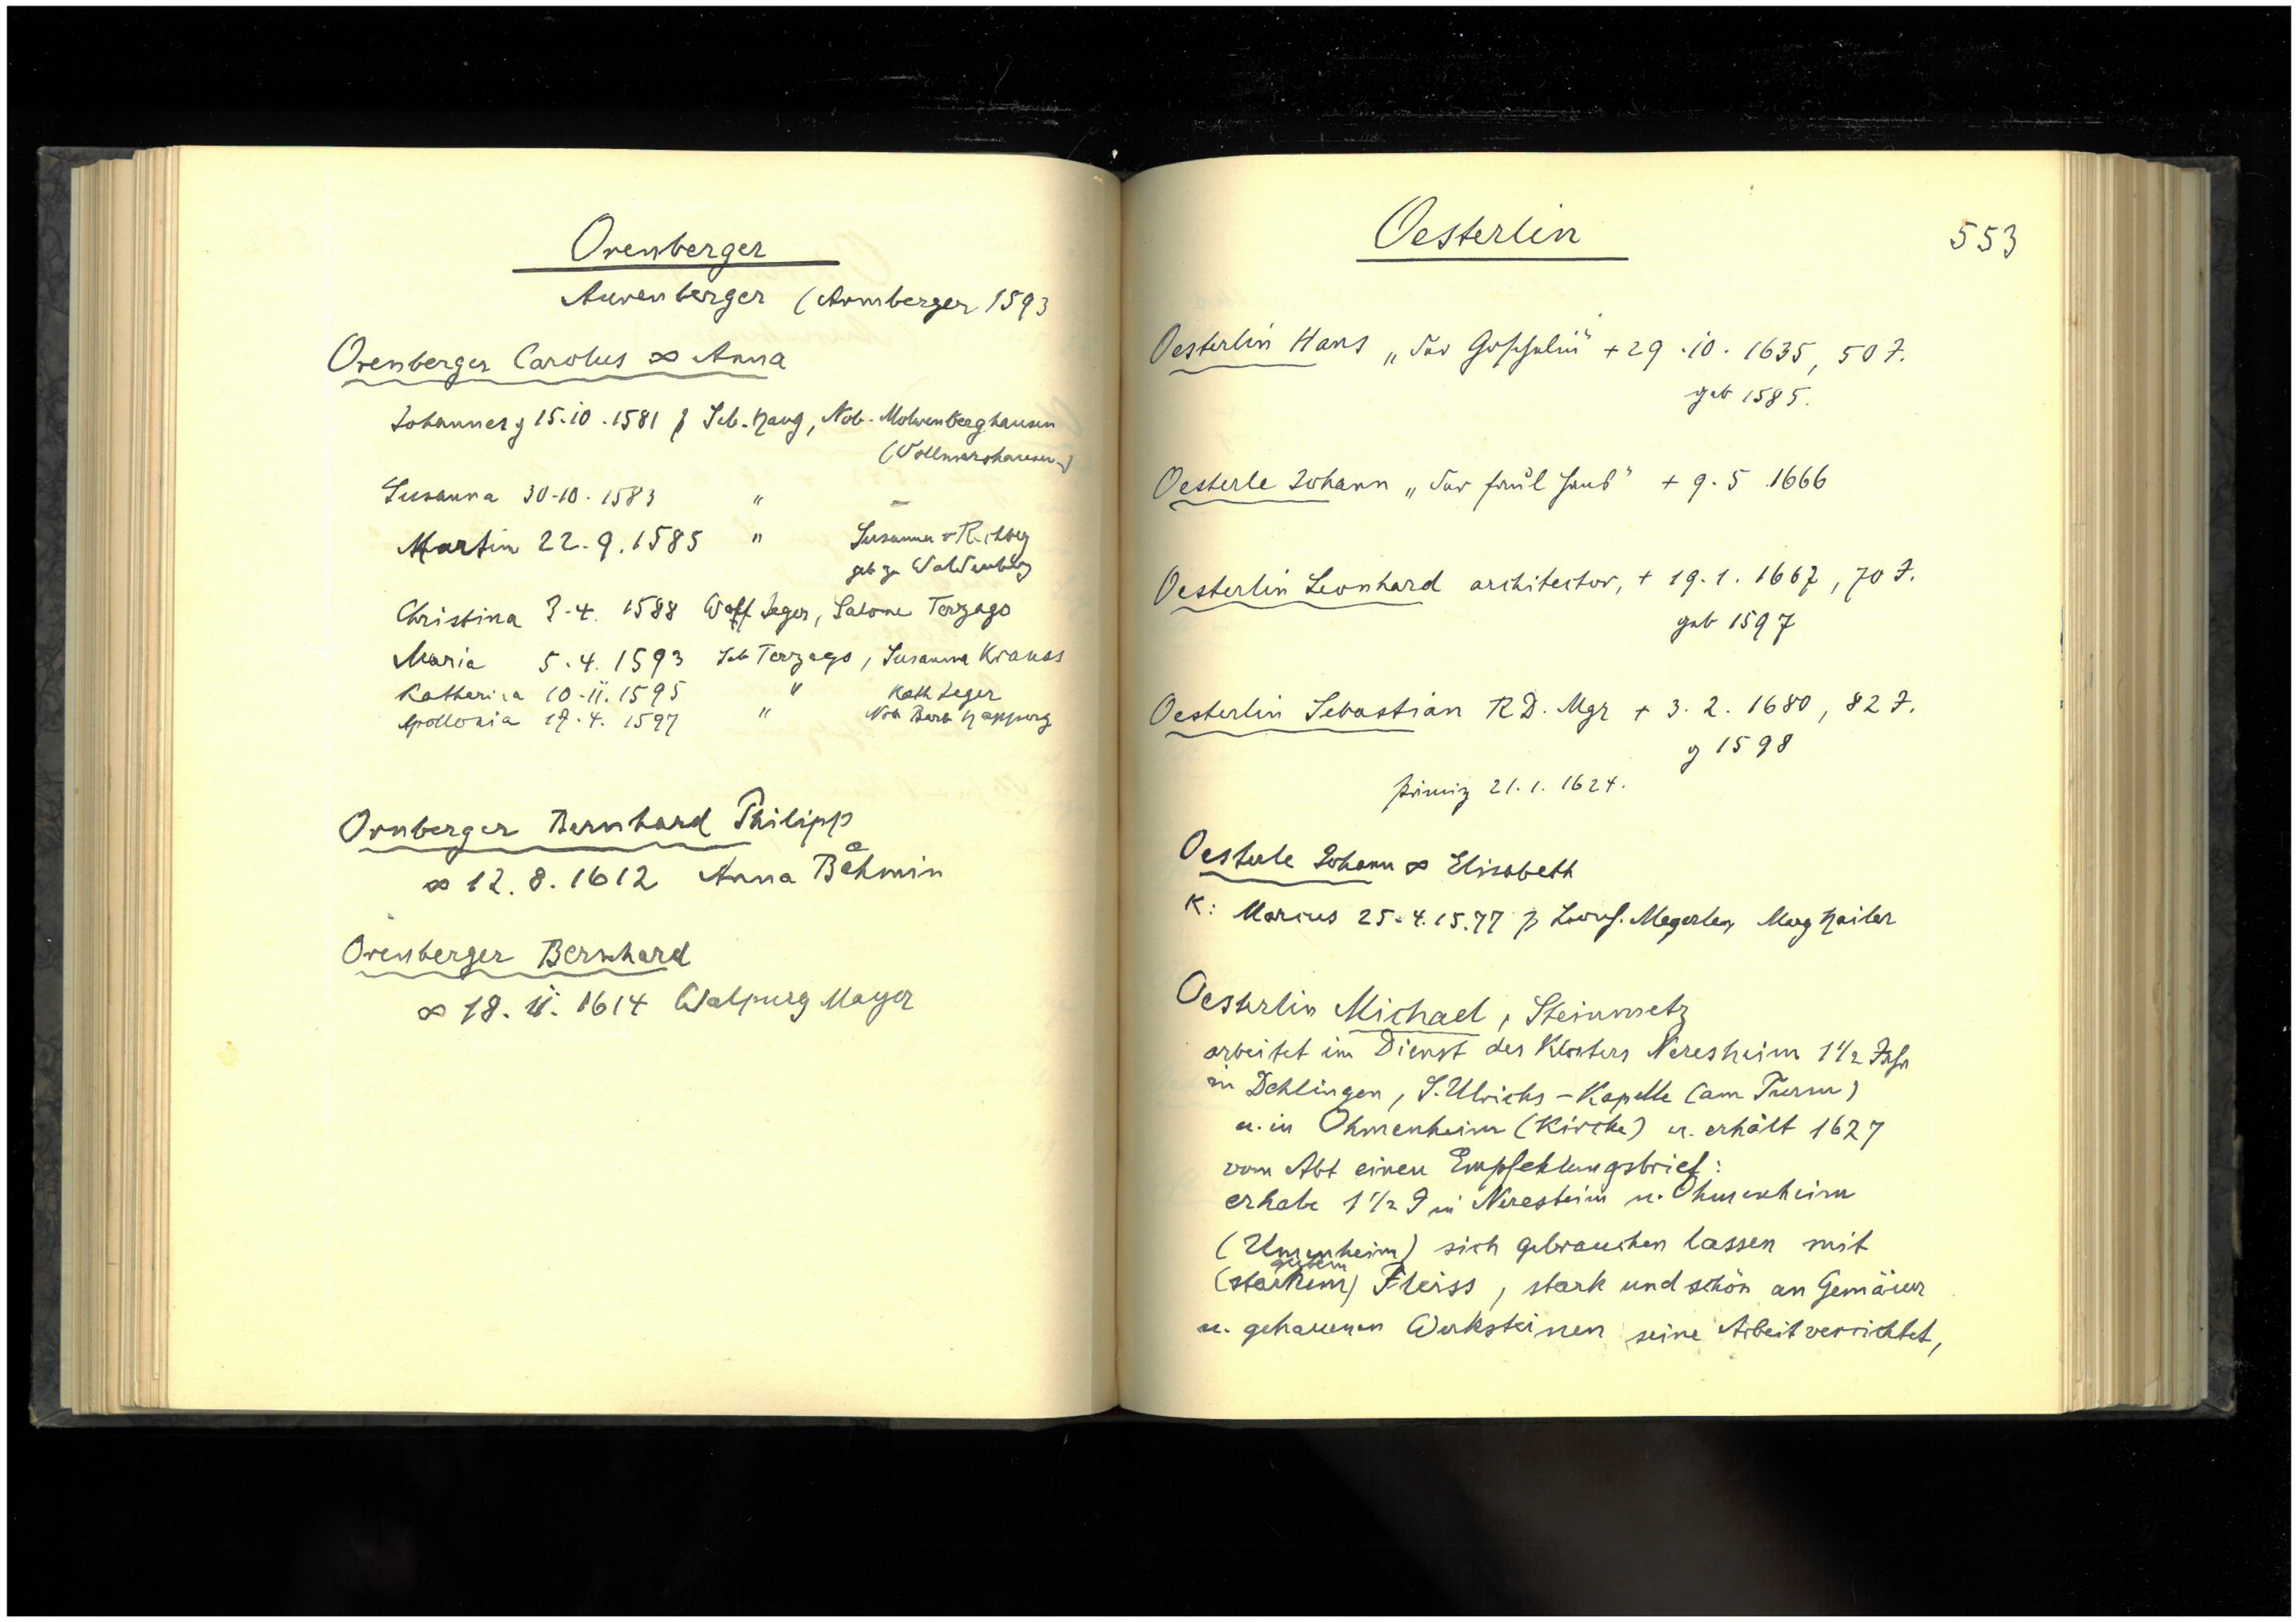 Orenberger
Aurenberger (Arnberger 1593
Orenberger Carolus ∞ Anna
Johannes g 15.10.1581 p Seb. Haug, Nob.
(Vollmershausen)
Susanna 30.10.1583 " –
Martin 22.9.1585 " Susanna v
geb zu Waldenburg
Christina 3.4.1588 Wolff Jeger, Salome Terzago
Maria 5.4.1593 Seb Terzago, Susanna Krauss
Katharina 10.11.1595 " Kath Jeger
Apollonia 17.4.1597 " Nob Barb
Ornberger Bernhard Philipp
∞ 12.8.1612 Anna
Orenberger Bernhard
∞ 18.11.1614 Walpurg Mayer
Oesterlin 553
Oesterlin Hans „der + 29.10.1635, 50 J.
geb 1585.
Oesterle Johann „der faul Hans" + 9.5.1666
Oesterlin Leonhard architector, + 19.1.1667, 70 J.
geb 1597
Oesterlin Sebastian R D. Mgr + 3.2.1680, 82 J.
g 1598
Primiz 21.1.1624.
Oesterle Johann ∞ Elisabeth
K: Marcus 25.4.1577 p Leonh. Megerler, Marg Hailer
Oesterlin Michael, Steinmetz
arbeitet im Dienst des Klosters Neresheim 1 1/2 Jahr
in Dehlingen, S. Ulrichs-Kapelle (am Turm)
u. in Ohmenheim (Kirche) u. erhält 1627
vom Abt einen Empfehlungsbrief:
er habe 1 1/2 J in Neresheim u. Ohmenheim
(Umenheim) sich gebrauchen lassen mit
gutem
(starkem) Fleiss, stark und schön an Gemäuer
u. gehauenen Werksteinen seine Arbeit verrichtet,